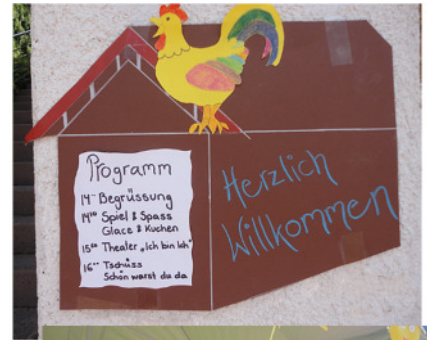 Programm
14⁰⁰ Begrüssung
14¹⁰ Spiel & Spass
Glace & Kuchen
15⁰⁰ Theater „Ich bin Ich"
16⁰⁰ Tschüss
Schön warst du da
Herzlich
Willkommen